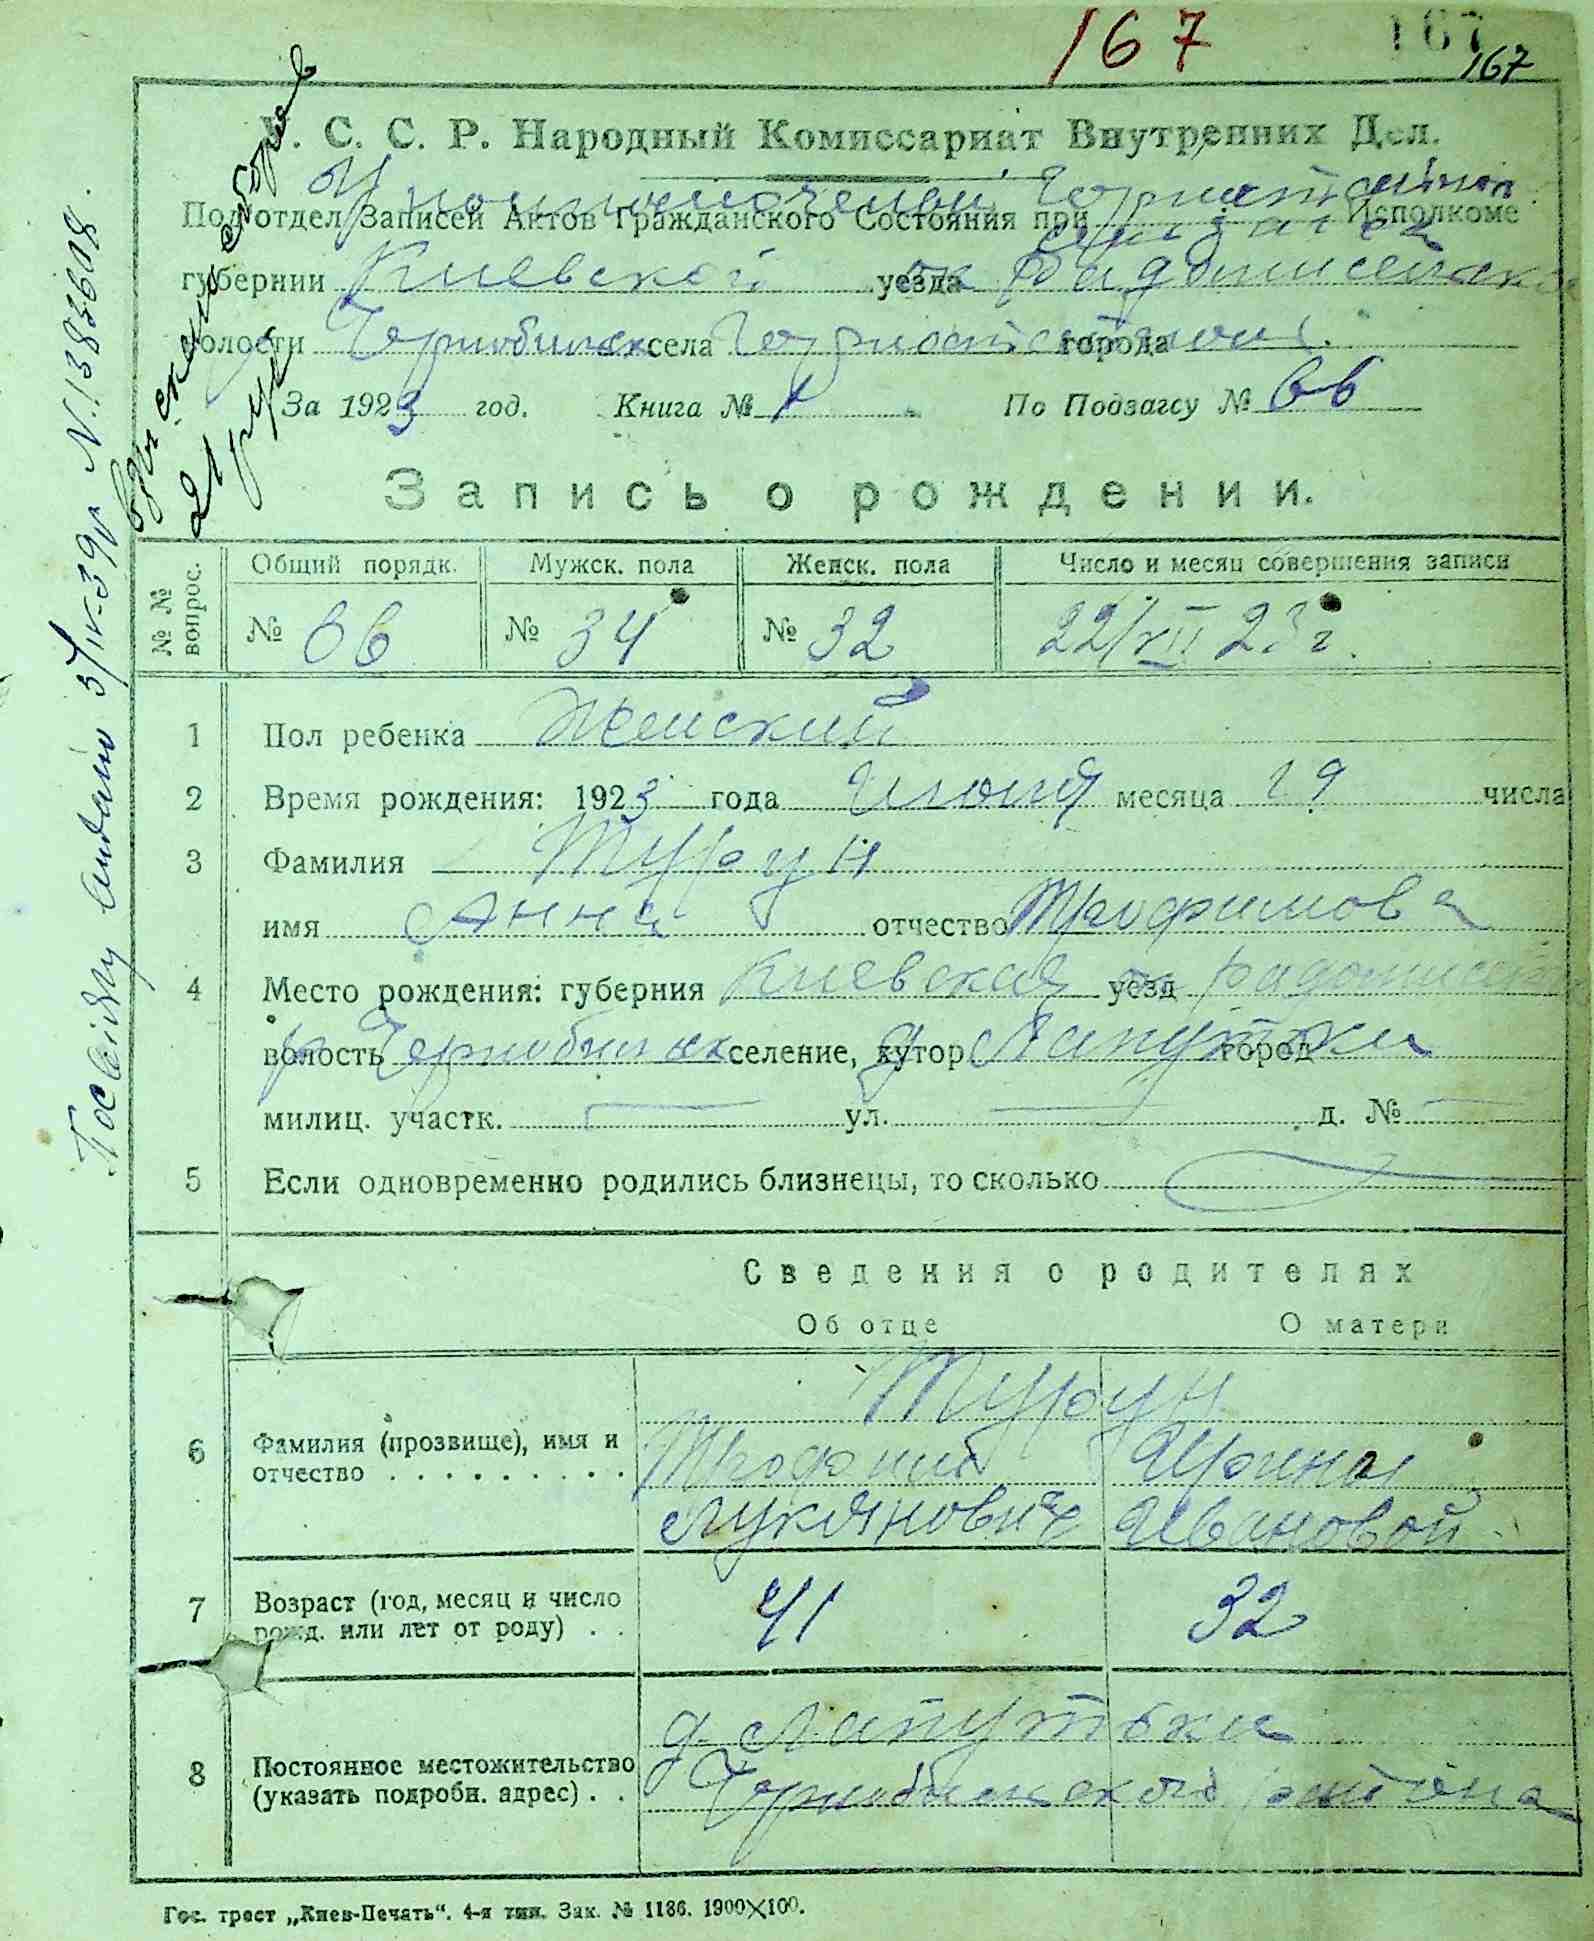 167
167
167
У. С. С. Р. Народный Комиссариат Внутренних Дел.
Подотдел Записей Актов Гражданского Состояния при Исполкоме
губернии Киевской уезда Радомисельск
волости Чернобильск села города
За 1923 год. Книга № 1 По Подзагсу № 66
Запись о рождении.
№ № вопрос.
Общий порядк. Мужск. пола Женск. пола Число и месяц совершения записи
№ 66 № 34 № 32 22/XII 23 г.
1 Пол ребенка Женский
2 Время рождения: 1923 года месяца 29 числа
3 Фамилия Турун
имя Анна отчество Трофимова
4 Место рождения: губерния Киевская уезд Радомисел
волость Чернобильск селение, хутор д Лапутьки город
милиц. участк. ул. д. №
5 Если одновременно родились близнецы, то сколько
Сведения о родителях
Об отце О матери
Турун
6 Фамилия (прозвище), имя и отчество Трофим Лукянович Ирина Ивановой
7 Возраст (год, месяц и число рожд. или лет от роду) 41 32
8 Постоянное местожительство (указать подробн. адрес) д. Лапутьки
Чернобильского района
Гос. трест „Киев-Печать“. 4-я тип. Зак. № 1186. 1900×100.
взыскано
2 руб
N. 1383608.